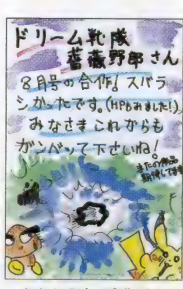 ドリーム靴隊
薔薇野郎さん
8月号の合作、スバラ
シかったです。(HPもみました!)
みなさまこれからも
ガンバッて下さいね!
またの作品
期待してます